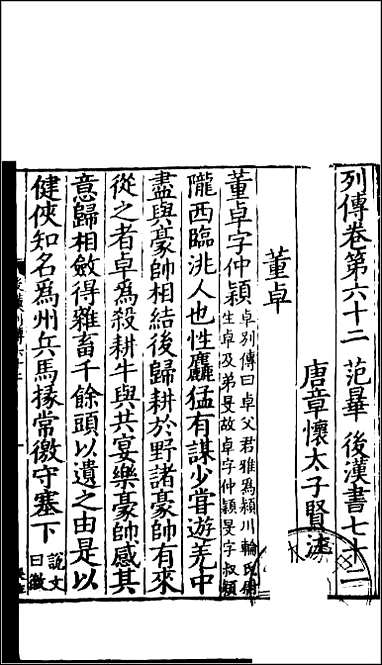 列傳卷第六十二 范曄 後漢書七十二
唐章懷太子賢注
董卓
董卓字仲穎 卓別傳曰卓父君雅爲潁川輪氏尉
生卓及弟旻故卓字仲穎旻字叔穎
隴西臨洮人也性麤猛有謀少嘗遊羌中
盡與豪帥相結後歸耕於野諸豪帥有來
從之者卓爲殺耕牛與共宴樂豪帥感其
意歸相斂得雜畜千餘頭以遺之由是以
健俠知名爲州兵馬掾常徼守塞下 說文
曰徼